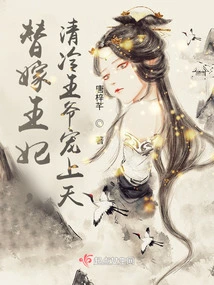 替嫁王妃
清冷王爷宠上天
唐梓芊
著